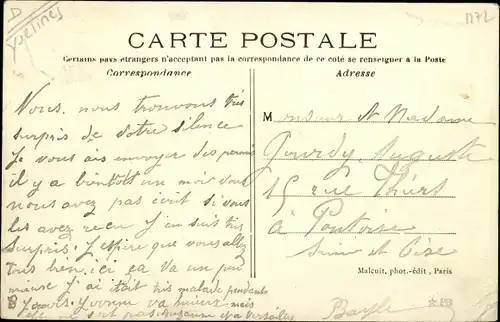 D
Yvelines
1172
CARTE POSTALE
Certains pays étrangers n'acceptant pas la correspondance de ce coté se renseigner à la Poste
Correspondance
Adresse
Nous nous trouvons très
surpris de votre silence
Je vous ais envoyer des
il y a bientôt un mois vous
nous avez pas écrit si vous
les avez reçu J'en suis très
surpris. J'espère que vous allez
tous bien, ici ça va un peu
J'ai était très malade pendants
8 jours. Yvonne va mieux mais
elle ne sort pas Suzanne va Versailles
Monsieur et Madame
Gourdy Auguste
15 rue Thiers
à Pontoise
Seine et Oise
Malcuit, phot.-édit, Paris